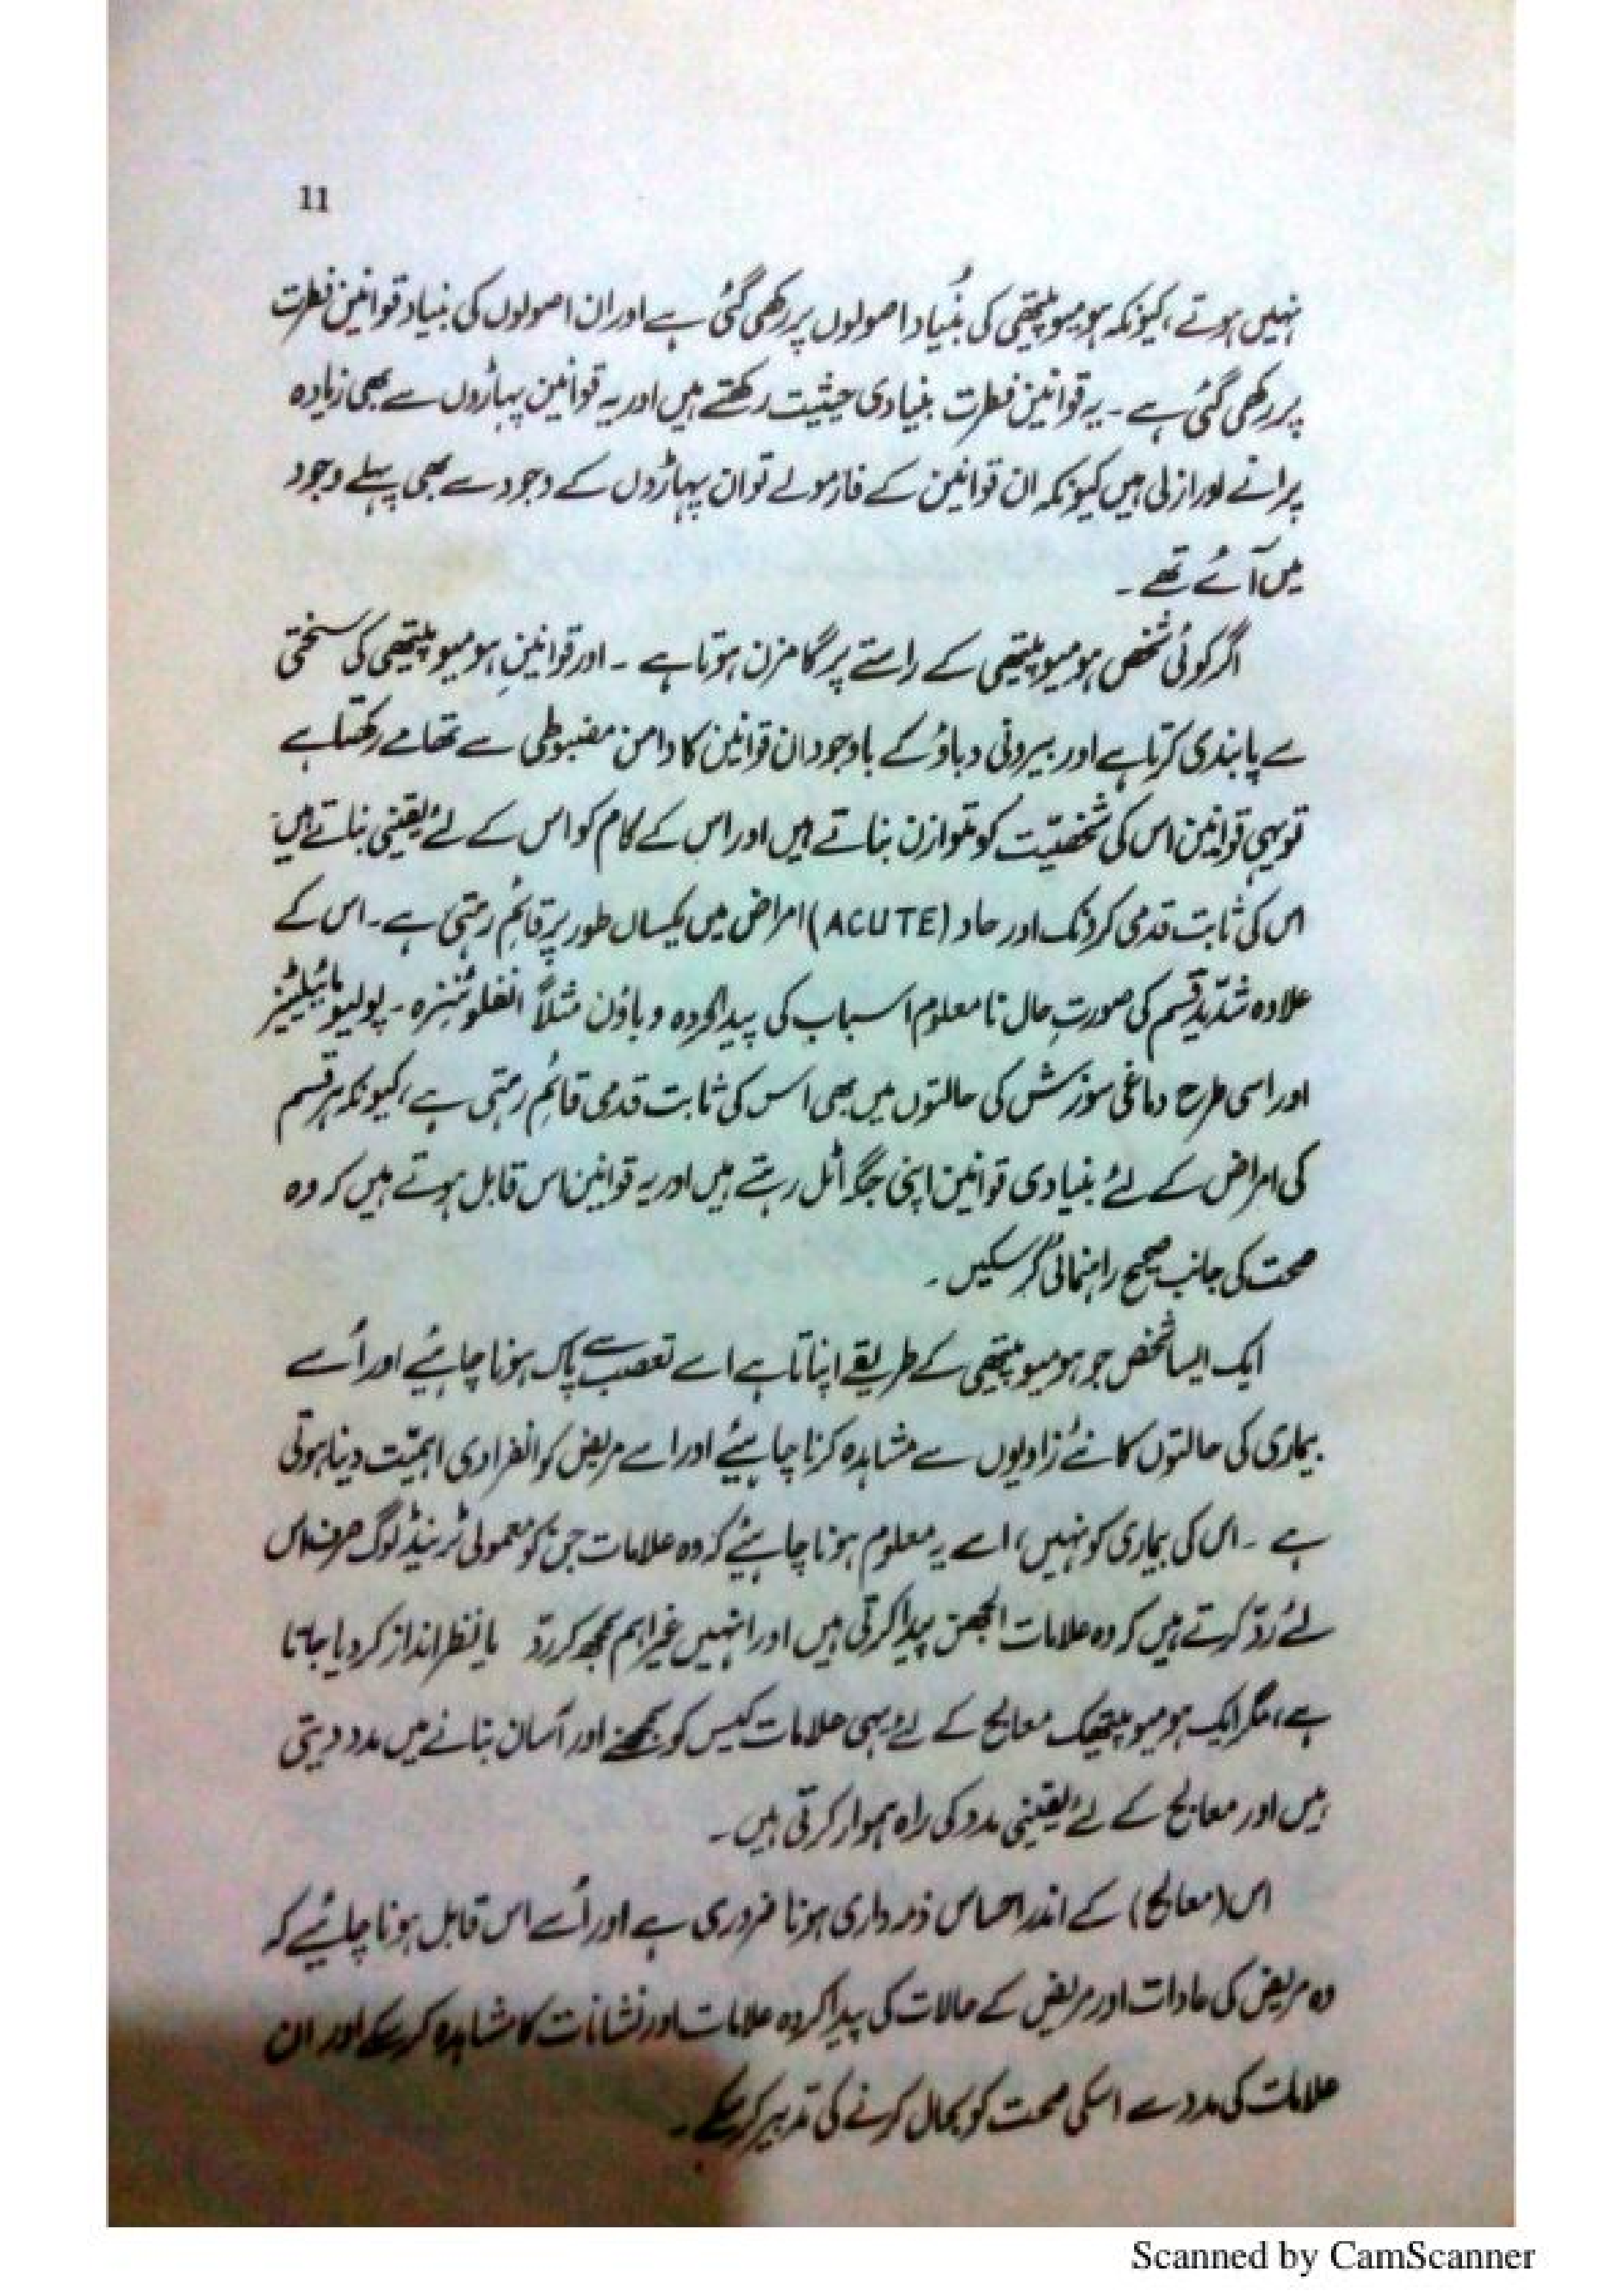 11
نہیں ہوتے، کیونکہ ہومیوپیتھی کی بُنیاد اصولوں پر رکھی گئی ہے اور ان اصولوں کی بنیاد قوانین فطرت
پر رکھی گئی ہے ۔ یہ قوانین فطرت بنیادی حیثیت رکھتے ہیں اور یہ قوانین پہاڑوں سے بھی زیادہ
پرانے اور ازلی ہیں کیونکہ ان قوانین کے فارمولے تو ان پہاڑوں کے وجود سے بھی پہلے وجود
میں آئے تھے ۔
اگر کوئی شخص ہومیوپیتھی کے راستے پر گامزن ہوتا ہے ۔ اور قوانینِ ہومیوپیتھی کی سختی
سے پابندی کرتا ہے اور بیرونی دباؤ کے باوجود ان قوانین کا دامن مضبوطی سے تھامے رکھتا ہے
تو یہی قوانین اس کی شخصیّت کو متوازن بناتے ہیں اور اس کے کام کو اس کے لئے یقینی بناتے ہیں
اس کی ثابت قدمی کرانک اور حاد (ACUTE) امراض میں یکساں طور پر قائم رہتی ہے۔ اس کے
علاوہ شدید قسم کی صورتِ حال نامعلوم اسباب کی پیدا کردہ وباؤں مثلاً انفلوئنزہ ۔ پولیو مائیلیٹیز
اور اسی طرح دماغی سوزش کی حالتوں میں بھی اس کی ثابت قدمی قائم رہتی ہے، کیونکہ ہر قسم
کی امراض کے لئے بنیادی قوانین اپنی جگہ اٹل رہتے ہیں اور یہ قوانین اس قابل ہوتے ہیں کہ وہ
صحت کی جانب صحیح راہنمائی کر سکیں ۔
ایک ایسا شخص جو ہومیوپیتھی کے طریقے اپناتا ہے اسے تعصب سے پاک ہونا چاہئیے اور اُسے
بیماری کی حالتوں کا نئے زاویوں سے مشاہدہ کرنا چاہئیے اور اسے مریض کو انفرادی اہمیّت دینا ہوتی
ہے ۔ اس کی بیماری کو نہیں، اسے یہ معلوم ہونا چاہئیے کہ وہ علامات جن کو معمولی ٹرینڈ لوگ صرف اس
لئے ردّ کرتے ہیں کہ وہ علامات الجھن پیدا کرتی ہیں اور انہیں غیر اہم سمجھ کر ردّ یا نظر انداز کر دیا جاتا
ہے، مگر ایک ہومیوپیتھک معالج کے لئے یہی علامات کیس کو سمجھنے اور آسان بنانے میں مدد دیتی
ہیں اور معالج کے لئے یقینی مدد کی راہ ہموار کرتی ہیں ۔
اس (معالج) کے اندر احساس ذمہ داری ہونا ضروری ہے اور اُسے اس قابل ہونا چاہئیے کہ
وہ مریض کی عادات اور مریض کے حالات کی پیدا کردہ علامات اور نشانات کا مشاہدہ کر سکے اور ان
علامات کی مدد سے اسکی صحت کو بحال کرنے کی تدبیر کر سکے ۔
Scanned by CamScanner